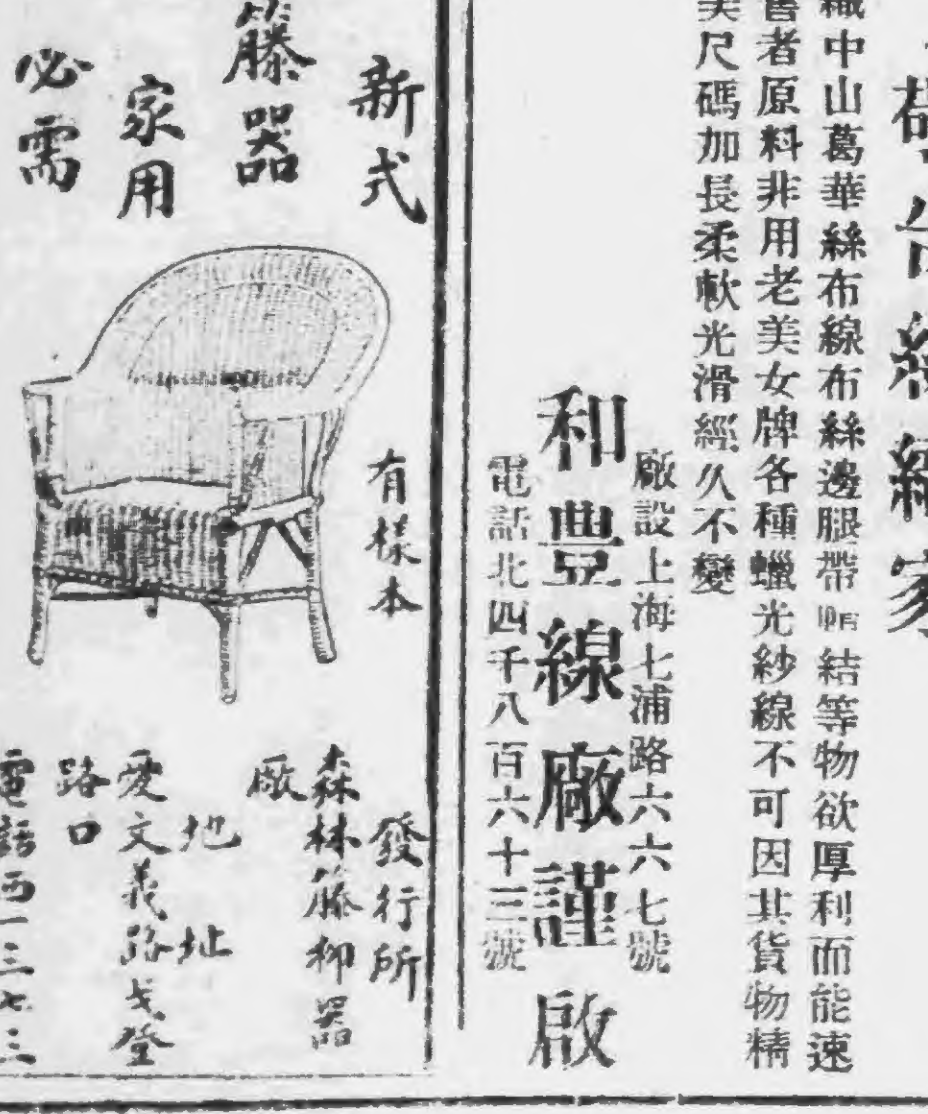 織中山葛華絲布線布絲邊腿帶帽結等物欲厚利而能速
售者原料非用老美女牌各種蠟光紗線不可因其貨物精
美尺碼加長柔軟光滑經久不變
廠設上海七浦路六六七號
和豊線廠謹啟
電話北四千八百六十三號
新式
籐器
家用
必需
有樣本
發行所
森林籐柳器
廠
地址
愛文義路戈登
路口
電話西一三七三